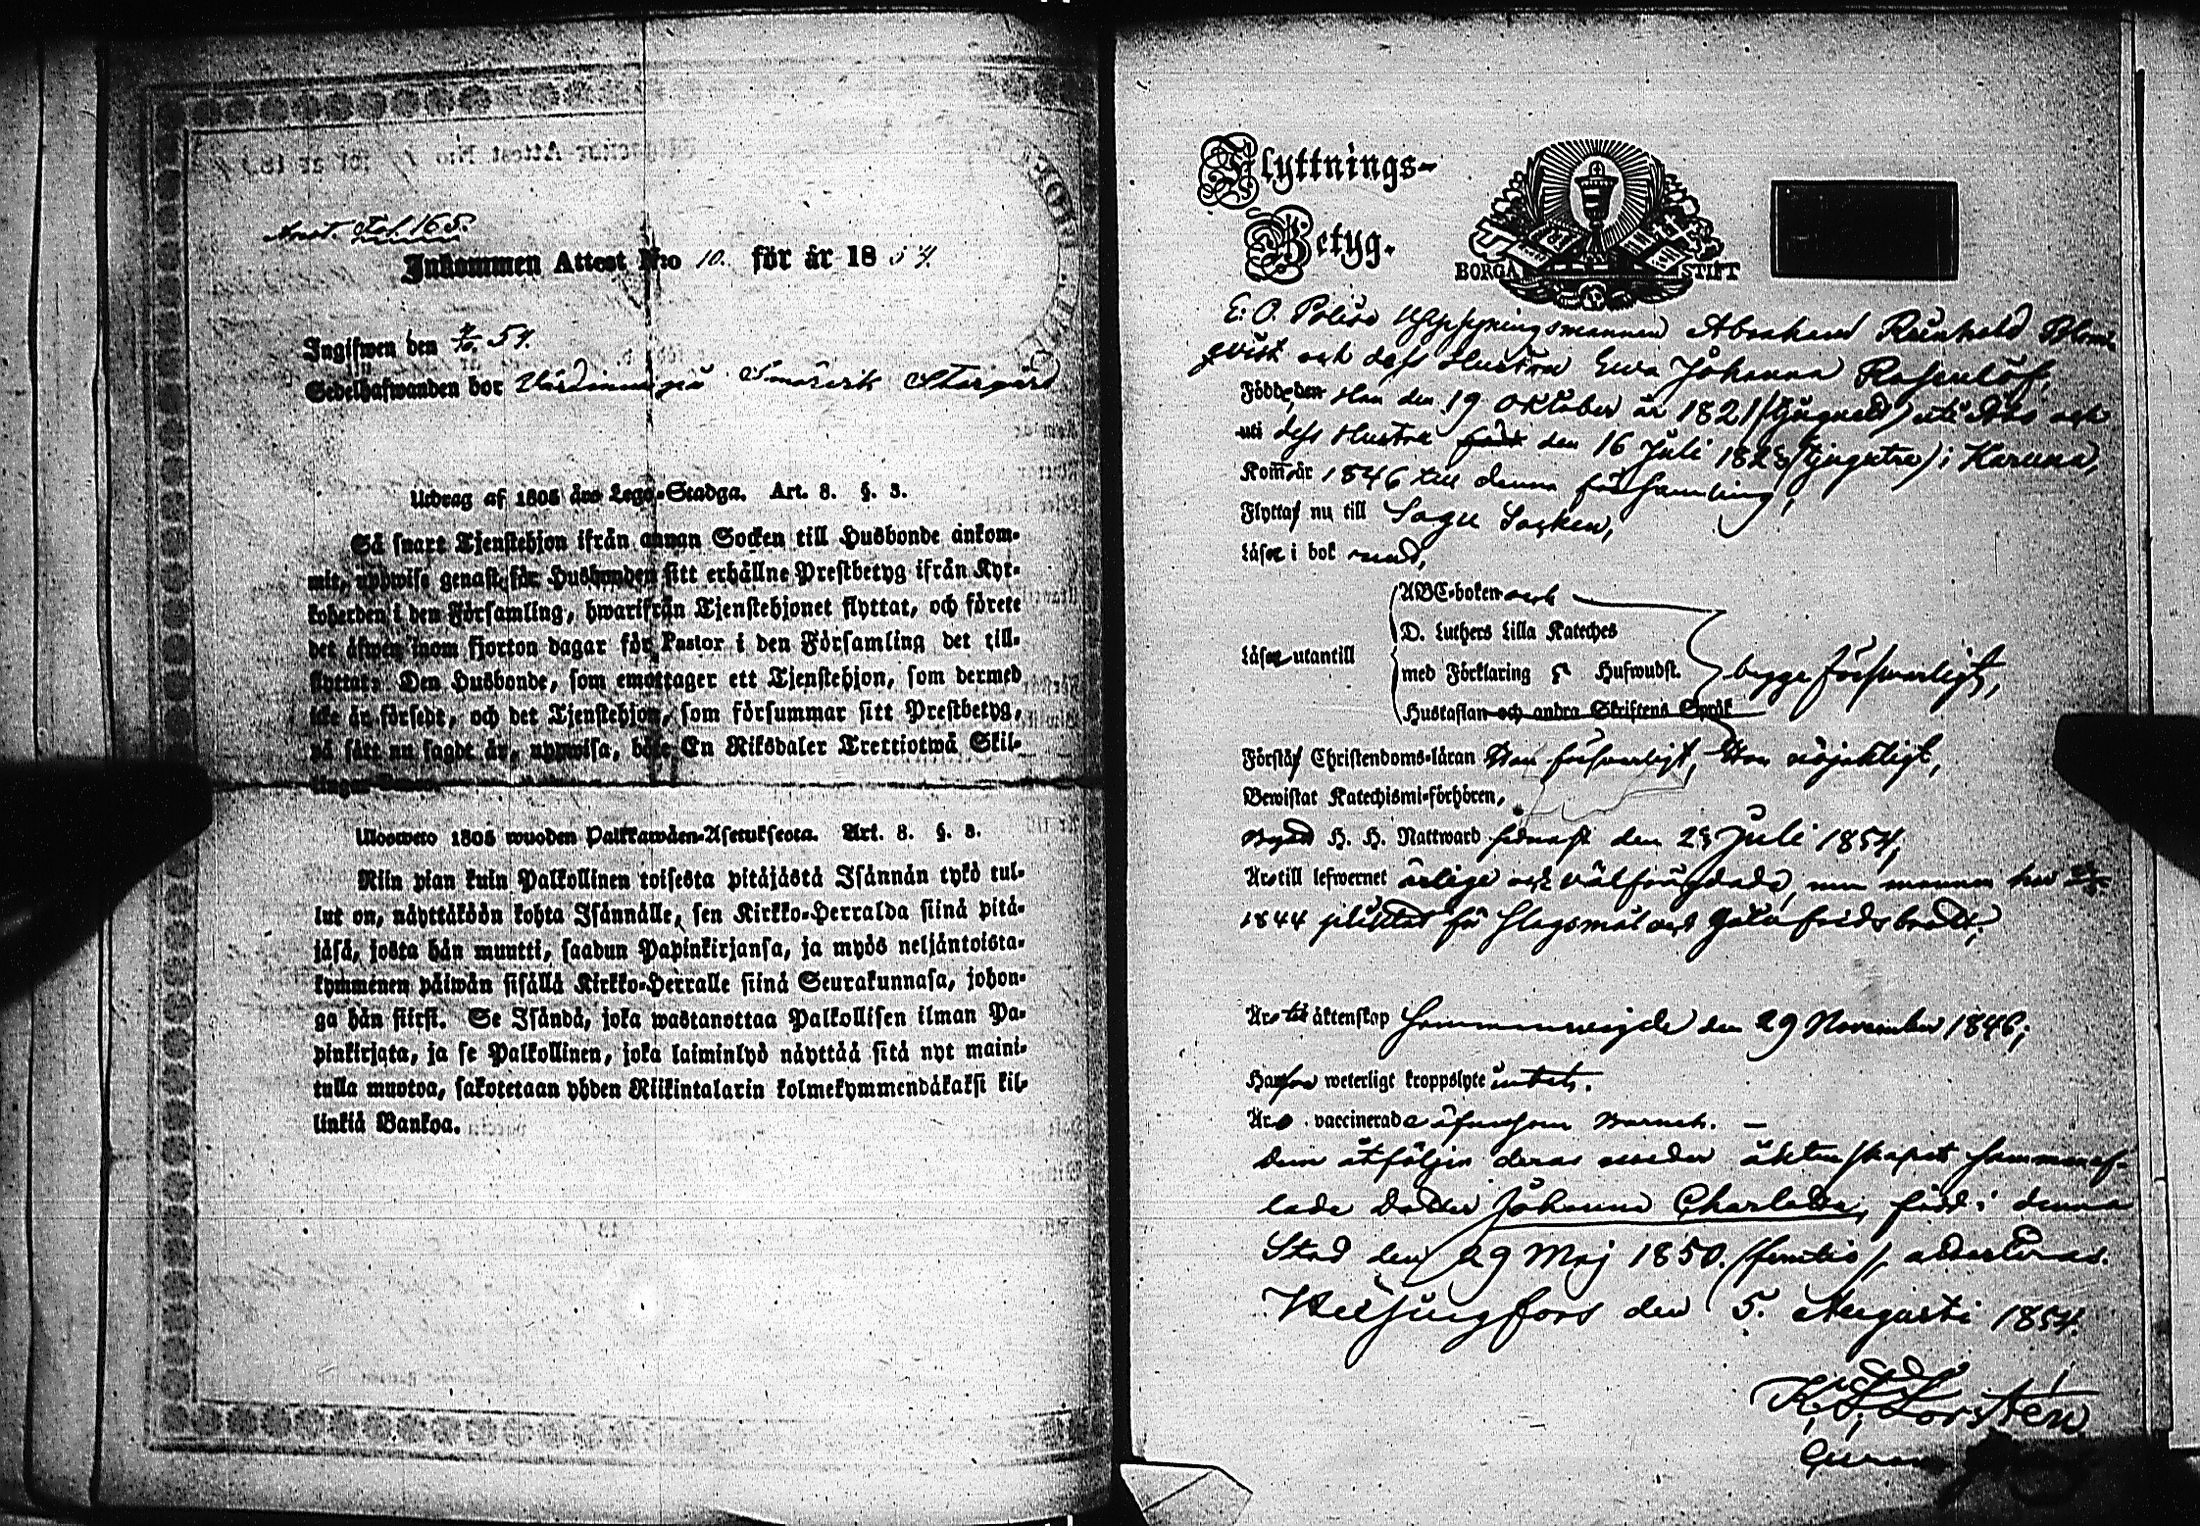 Fol. 165.
Inkommen Attest N:o 10. för år 1854.
Ingifwen den 54.
Sedelhafwanden bor Storgård
Utdrag af 1805 års Lego-Stadga. Art. 8. §. 3.
Så snart Tjenstehjon ifrån annan Socken till Husbonde ankom-
mit, uppwise genast för Husbonden sitt erhållne Prestbetyg ifrån Kyr-
koherden i den Församling, hwarifrån Tjenstehjonet flyttat, och förete
det äfwen inom fjorton dagar för Pastor i den Församling det till-
flyttat. Den Husbonde, som emottager ett Tjenstehjon, som dermed
icke är försedt, och det Tjenstehjon, som försummar sitt Prestbetyg,
på sätt nu sagdt är, uppwisa, böte En Riksdaler Trettiotwå Skil-
Ulosweto 1805 wuoden Palkkawäen-Asetuksesta. Art. 8. §. 3.
Niin pian kuin Palkollinen toisesta pitäjästä Isännän tykö tul-
lut on, näyttäköön kohta Isännälle, sen Kirkko-Herralda siinä pitä-
jäsä, josta hän muutti, saadun Papinkirjansa, ja myös neljäntoista-
kymmenen päiwän sisällä Kirkko-Herralle siinä Seurakunnasa, johon-
ga hän siirst. Se Isändä, joka wastanottaa Palkollisen ilman Pa-
pinkirjata, ja se Palkollinen, joka laiminlyö näyttää sitä nyt maini-
tulla muotoa, sakotetaan yhden Riikintalarin kolmekymmendäkaksi kil-
linkiä Bankoa.
Flyttnings-
Betyg.
BORGÅ STIFT
E. O. Police Uppsyningsmannen Abraham Reinhold Blom-
qvist och dess Hustru Ewa Johanna Rosenlöf,
Födde, den Han den 19 Oktober år 1821 (tjuguett) uti Åbo och
uti dess Hustru född den 16 Juli 1823 (tjugutre) i Karuna,
Kom år 1846 till denna församling,
Flytta nu till Sagu Socken,
Läser i bok med,
ABC-boken och
D. Luthers Lilla Kateches
Läser utantill
med Förklaring Hufwudst.
begge förswarligt,
Hustaflan och andra Skriftens Språk
Förstå Christendoms-läran Han förswarligt, Hon nöjaktigt,
Bewistat Katechismi-förhören,
Begått H. H. Nattward sednast den 23 Juli 1854,
Äro till lefwernet ärlige och välfrägdade, men mannen har
1844 pliktat för slagsmål och gatufridsbrott;
Äro till äktenskap sammanvigde den 29 November 1846;
Hafva weterligt kroppslyte intet.
Äro vaccinerade äfvensom barnet. —
Dem åtföljer deras under äktenskapet samman af-
lade Dotter Johanna Charlotta, född i denna
Stad den 29 Maj 1850. (femtio), attesteras.
Helsingfors den 5. Augusti 1854.
K. J. Forstén